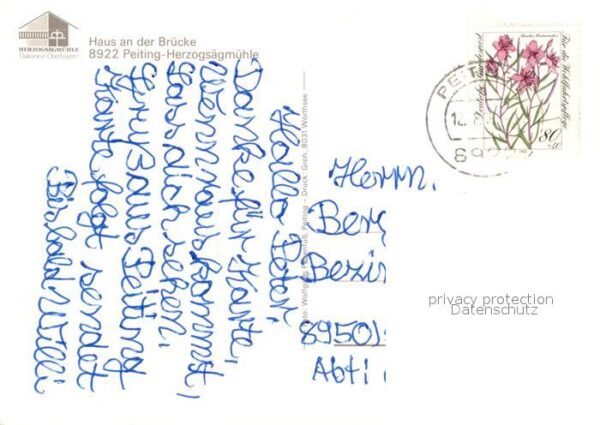 HERZOGSÄGMÜHLE
Diakonie in Oberbayern
Haus an der Brücke
8922 Peiting-Herzogsägmühle
Hallo Peter,
Danke für Karte,
Wenn raus kommst,
Lass dich sehen.
Gruß aus Peiting
Karte folgt sendet
Bis bald Willi
Foto: Wolfgang Peiting – Druck: Groh, 8031 Wörthsee
Herrn.
Berg
Bezir
8950
Abti
Deutsche Bundespost
Für die Wohlfahrtspflege
80
PEITI
privacy protection
Datenschutz